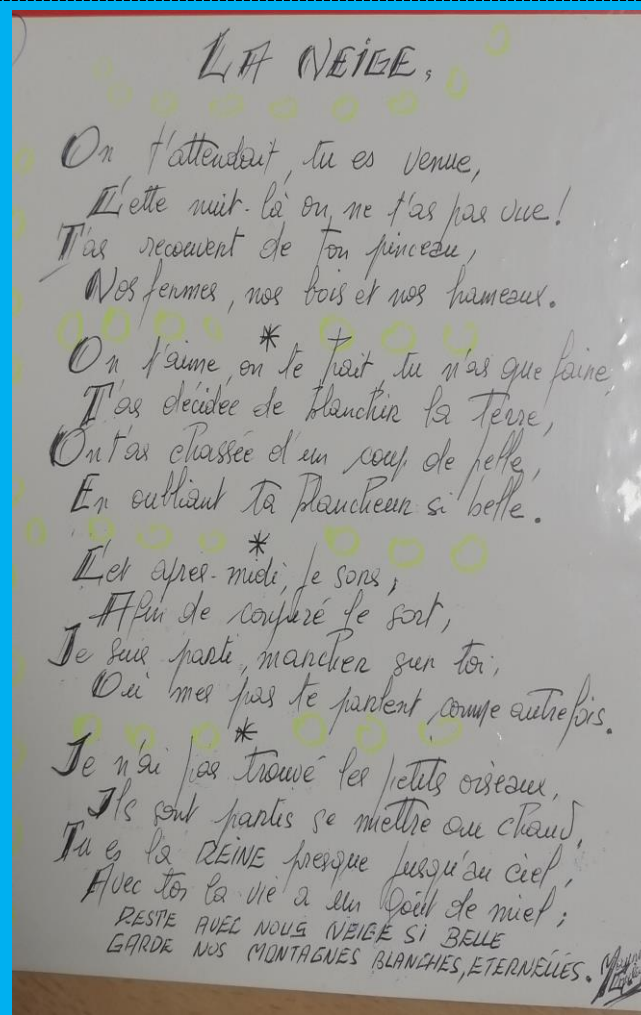 LA NEIGE,
On t'attendait, tu es venue,
Cette nuit-là on ne t'as pas vue!
T'as recouvert de ton pinceau,
Nos fermes, nos bois et nos hameaux.
*
On t'aime, on te hait, tu n'as que faire,
T'as décidée de blanchir la terre,
On t'as chassée d'un coup de pelle,
En oubliant ta blancheur si belle.
*
Cet apres-midi, je sors,
Afin de conjuré le sort,
Je suis parti, marcher sur toi,
Où mes pas te parlent, comme autrefois.
*
Je n'ai pas trouvé les petits oiseaux,
Ils sont partis se mettre au chaud,
Tu es la REINE presque jusqu'au ciel,
Avec toi la vie a un goût de miel;
RESTE AVEC NOUS NEIGE SI BELLE
GARDE NOS MONTAGNES BLANCHES, ETERNELLES.